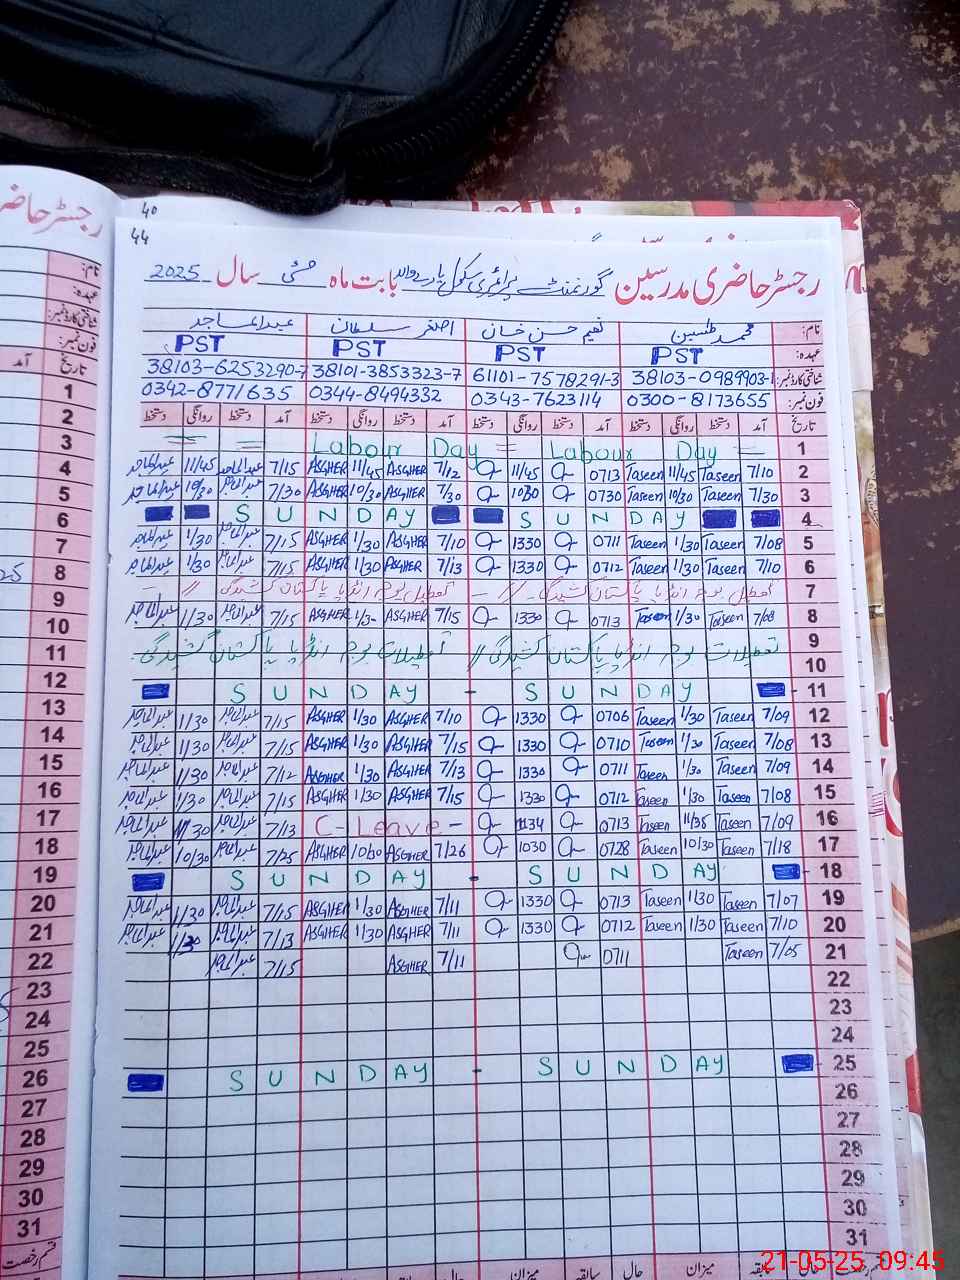 40
44
رجسٹر حاضری مدرسین گورنمنٹ پرائمری سکول بابت ماہ مئی سال 2025
رجسٹر حاضر
نام: محمد تحسین نعیم حسن خان اصغر سلطان عبدالماجد
عہدہ: PST PST PST PST
شناختی کارڈ نمبر: 38103-0989903-1 61101-7578291-3 38101-3853323-7 38103-6253290-7
فون نمبر: 0300-8173655 0343-7623114 0344-8494332 0342-8771635
تاریخ آمد دستخط روانگی دستخط آمد دستخط روانگی دستخط آمد دستخط روانگی دستخط آمد دستخط روانگی دستخط
= = Labour Day = Labour Day = 1
عبدالماجد 11/45 عبدالماجد 7/15 ASGHER 11/45 ASGHER 7/12 11/45 0713 Taseen 11/45 Taseen 7/10 2
عبدالماجد 10/30 عبدالماجد 7/30 ASGHER 10/30 ASGHER 7/30 1030 0730 Taseen 10/30 Taseen 7/30 3
SUNDAY SUNDAY 4
عبدالماجد 1/30 عبدالماجد 7/15 ASGHER 1/30 ASGHER 7/10 1330 0711 Taseen 1/30 Taseen 7/08 5
عبدالماجد 1/30 عبدالماجد 7/15 ASGHER 1/30 ASGHER 7/13 1330 0712 Taseen 1/30 Taseen 7/10 6
تعطیل بوجہ انڈیا پاکستان کشیدگی // تعطیل بوجہ انڈیا پاکستان کشیدگی // 7
عبدالماجد 1/30 عبدالماجد 7/15 ASGHER 1/3- ASGHER 7/15 1330 0713 Taseen 1/30 Taseen 7/08 8
تعطیلات بوجہ انڈیا پاکستان کشیدگی // تعطیلات بوجہ انڈیا پاکستان کشیدگی 9
10
SUNDAY - SUNDAY - 11
عبدالماجد 1/30 عبدالماجد 7/15 ASGHER 1/30 ASGHER 7/10 1330 0706 Taseen 1/30 Taseen 7/09 12
عبدالماجد 1/30 عبدالماجد 7/15 ASGHER 1/30 ASGHER 7/15 1330 0710 Taseen 1/30 Taseen 7/08 13
عبدالماجد 1/30 عبدالماجد 7/12 ASGHER 1/30 ASGHER 7/13 1330 0711 Taseen 1/30 Taseen 7/09 14
عبدالماجد 1/30 عبدالماجد 7/15 ASGHER 1/30 ASGHER 7/15 1330 0712 Taseen 1/30 Taseen 7/08 15
عبدالماجد عبدالماجد 7/13 C-Leave - 1134 0713 Taseen 11/35 Taseen 7/09 16
عبدالماجد 10/30 عبدالماجد 7/25 ASGHER ASGHER 7/26 1030 0728 Taseen 10/30 Taseen 7/18 17
SUNDAY - SUNDAY - 18
عبدالماجد 1/30 عبدالماجد 7/15 ASGHER 1/30 ASGHER 7/11 1330 0713 Taseen 1/30 Taseen 7/07 19
عبدالماجد 1/30 عبدالماجد 7/13 ASGHER 1/30 ASGHER 7/11 1330 0712 Taseen 1/30 Taseen 7/10 20
عبدالماجد 7/15 ASGHER 7/11 0711 Taseen 7/05 21
22
23
24
SUNDAY - SUNDAY 25
26
27
28
29
30
31
میزان سابقہ حال میزان سابقہ حال
نام:
عہدہ:
شناختی کارڈ نمبر:
فون نمبر:
تاریخ آمد
1
2
3
4
5
6
7
8
9
10
11
12
13
14
15
16
17
18
19
20
21
22
23
24
25
26
27
28
29
30
31
قسم رخصت
21-05-25 09:45